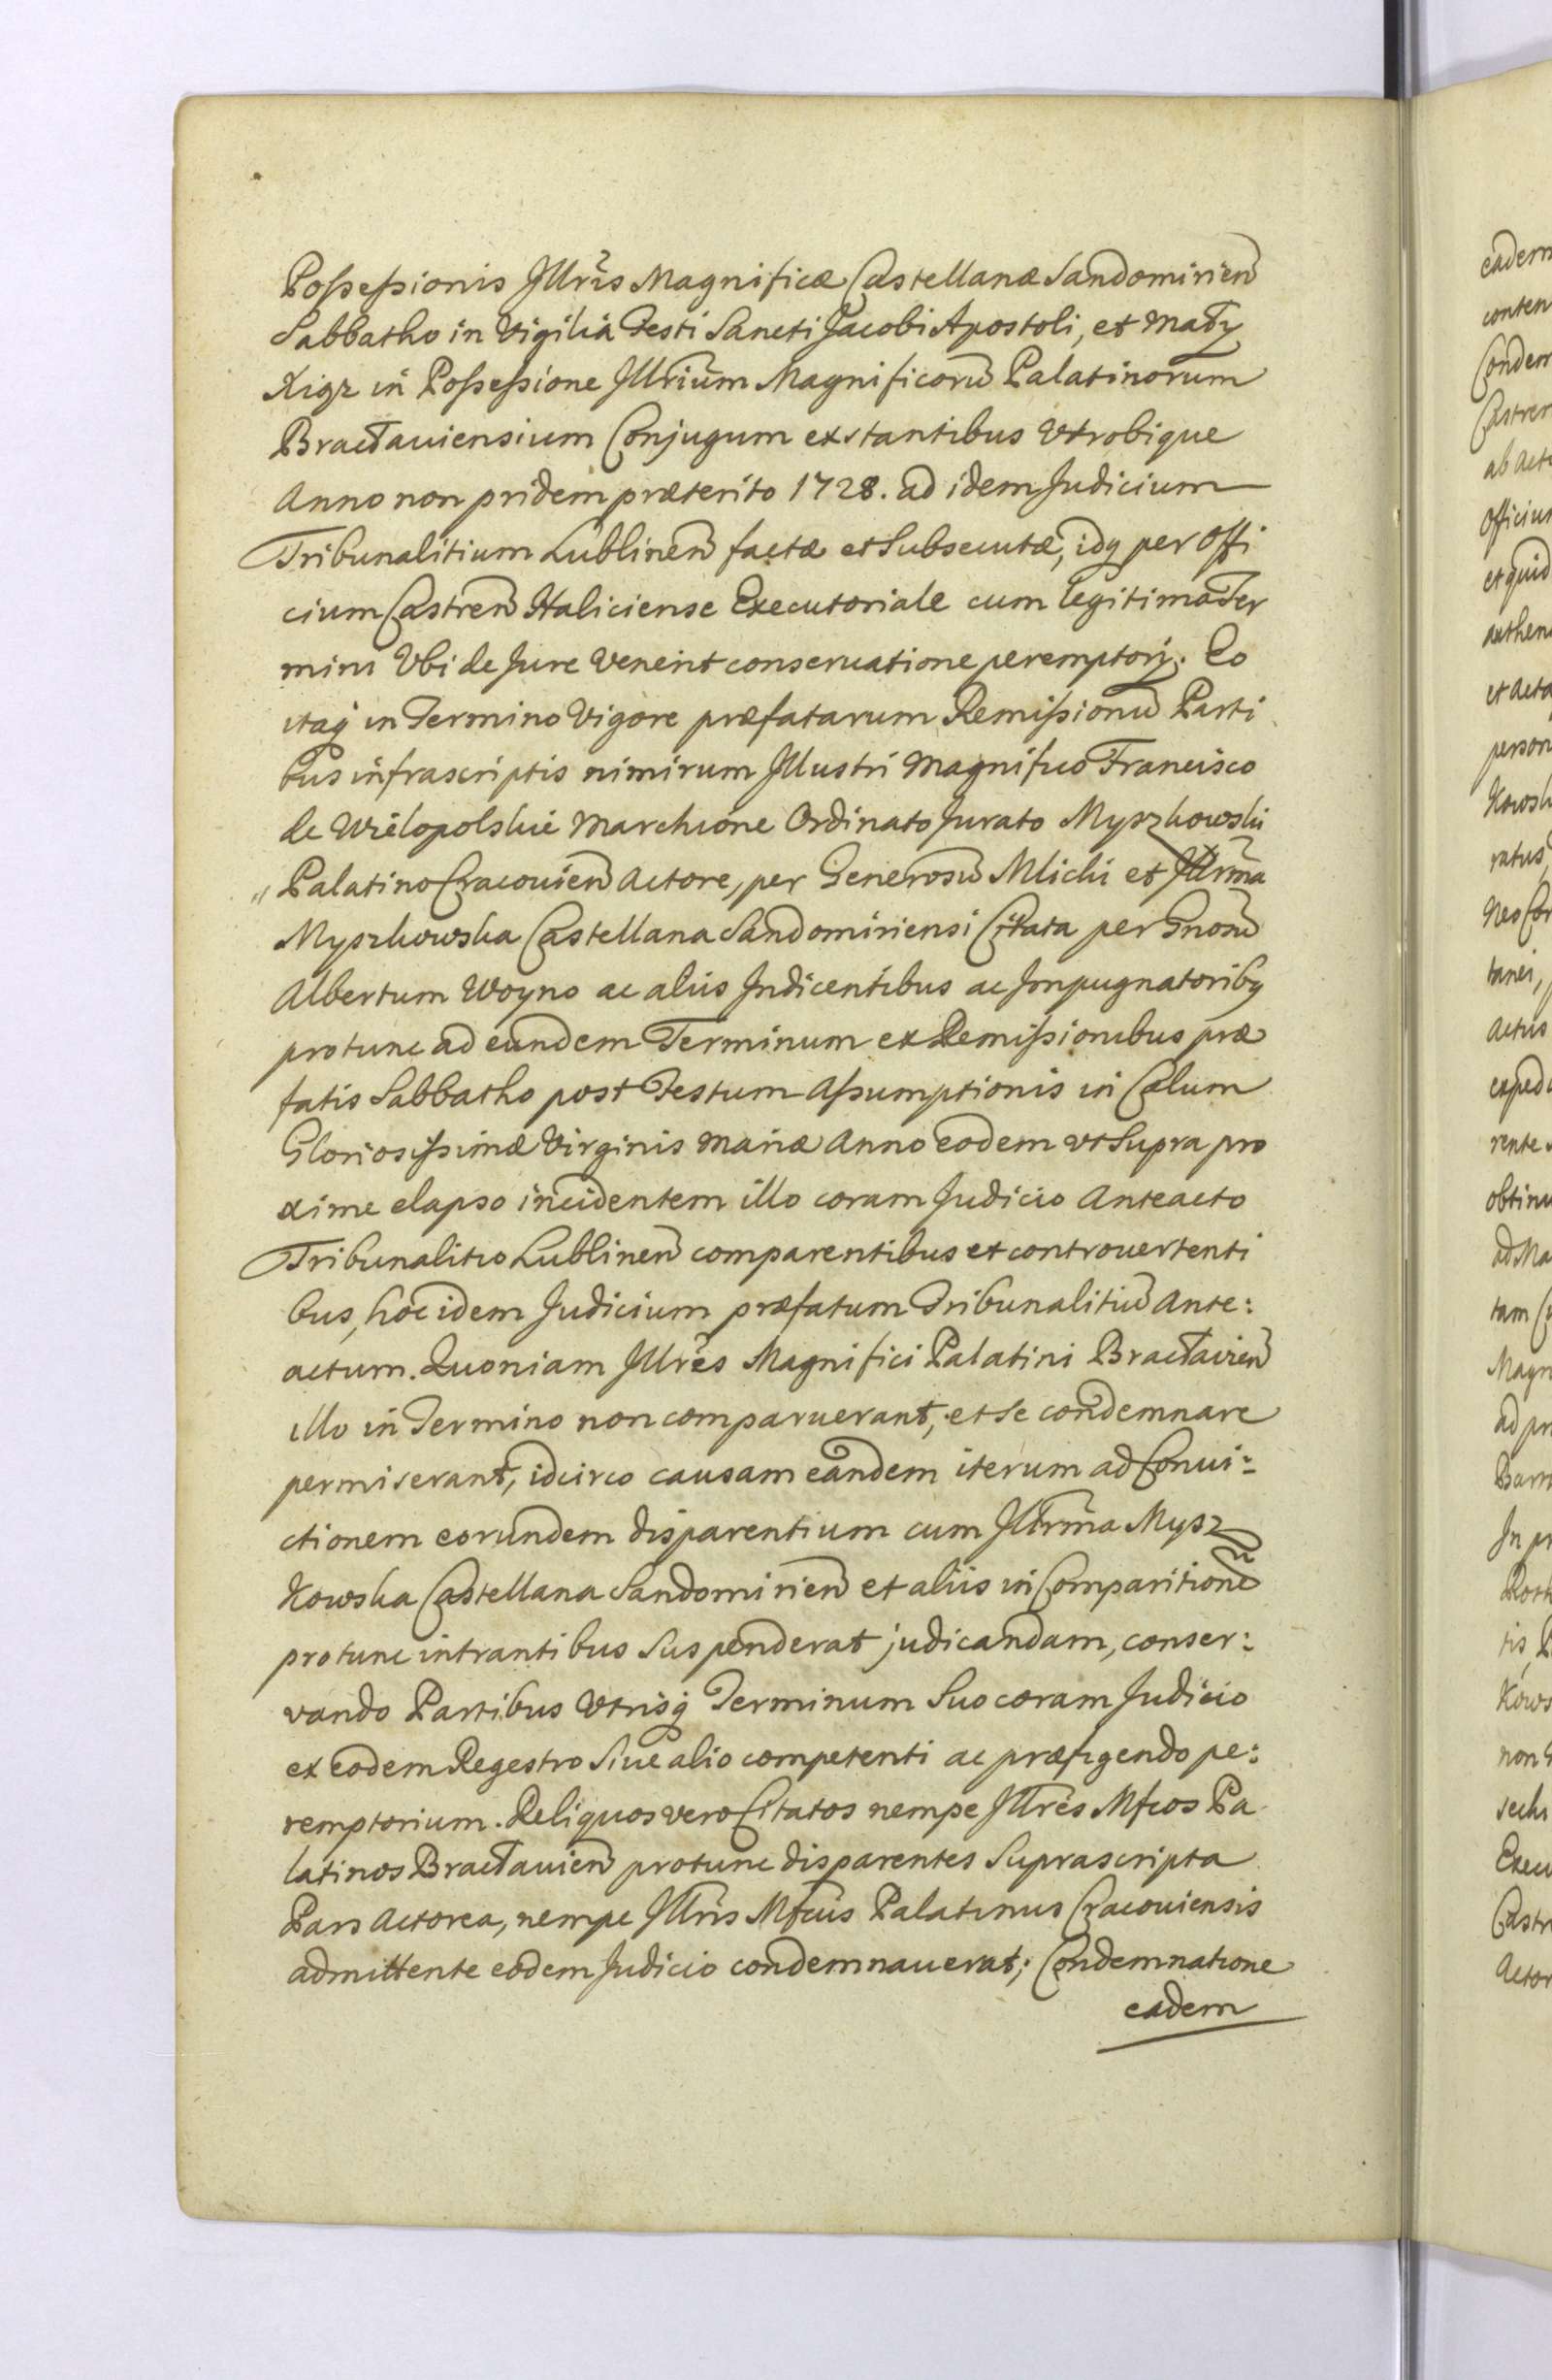 Possessionis Illr̃is Magnificæ Castellanæ Sandomirien̄
Sabbatho in Vigilia Festi Sancti Jacobi Apostoli, et
in Possessione Illrium̄ Magnificorū Palatinorum
Braclauiensium Conjugum exstantibus Vtrobique
Anno non pridem præterito 1728. ad idem Judicium
Tribunalitium Lublinen̄ factæ et Subsecutæ, idq per Offi
cium Castren̄ Haliciense Executoriale cum legitima Ter
mini Vbi de Jure Venerit conseruatione peremptorij. Eo
itaq in Termino Vigore præfatarum Remissionū Parti
bus infrascriptis nimirum Illustri Magnifico Francisco
de Wielopolskie Marchione Ordinato Jurato Myszkowski
Palatino Cracouien̄ Actore, per Generosū Mlicki et Illrm̃a
Myszkowska Castellana Sandomiriensi Citata per Gnosū
Albertum Woyno ac aliis Indicentibus ac Impugnatoribq
protunc ad eundem Terminum ex Remissionibus præ
fatis Sabbatho post Festum Assumptionis in Cælum
Gloriosissimæ Virginis Mariæ Anno eodem vt Supra pro
xime elapso incidentem illo coram Judicio Anteacto
Tribunalitio Lublinen̄ comparentibus et controuertenti
bus, hoc idem Judicium præfatum Tribunalitiū Ante:
actum. Quoniam Illr̃es Magnifici Palatini Braclavien̄
illo in Termino non comparuerant, et se condemnare
permiserant, idcirco causam eandem iterum ad Conui:
ctionem eorundem disparentium cum Illrm̃a Mysz
Kowska Castellana Sandomirien̄ et aliis in Comparitionē
protunc intrantibus Suspenderat judicandam, conser:
vando Partibus Vtrisq Terminum Suo coram Judicio
ex eodem Regestro Siue alio competenti ac præfigendo pe:
remptorium. Reliquos vero Citatos nempe Illres Mfcos Pa
latinos Braclauien̄ protunc disparentes Suprascripta
Pars Actorea, nempe Illris Mfcus Palatinus Cracouiensis
admittente eodem Judicio condemnauerat; Condemnatione
eadem